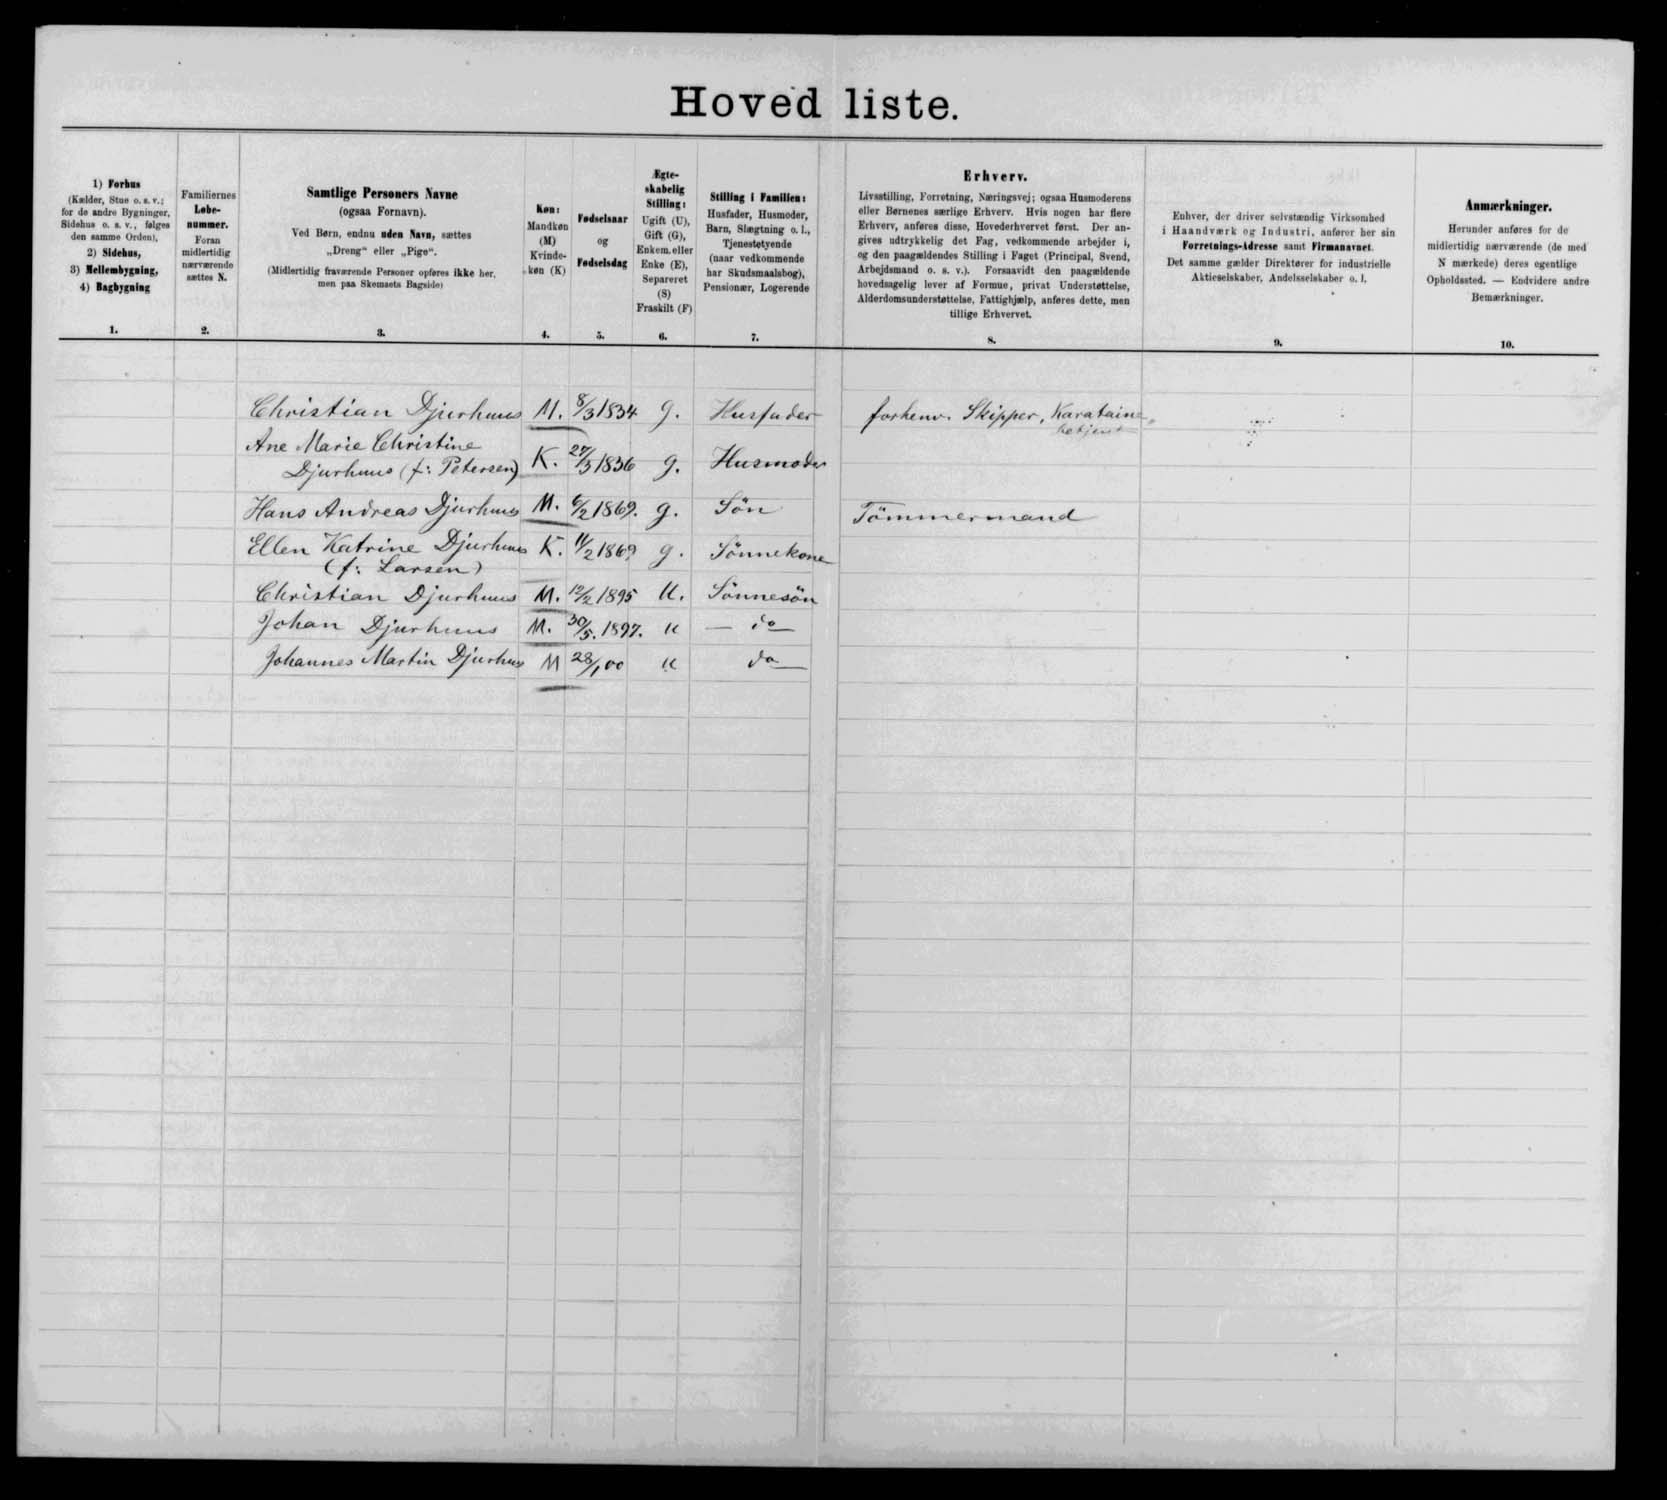 Hoved liste.
1) Forhus
(Kælder, Stue o. s. v.;
for de andre Bygninger,
Sidehus o. s. v., følges
den samme Orden),
2) Sidehus,
3) Mellembygning,
4) Bagbygning
1.
Familiernes
Løbe-
nummer.
Foran
midlertidig
nærværende
sættes N.
2.
Samtlige Personers Navne
(ogsaa Fornavn).
Ved Børn, endnu uden Navn, sættes
„Dreng“ eller „Pige“.
(Midlertidig fraværende Personer opføres ikke her,
men paa Skemaets Bagside)
3.
Køn:
Mandkøn
(M)
Kvinde-
køn (K)
4.
Fødselsaar
og
Fødselsdag
5.
Ægte-
skabelig
Stilling:
Ugift (U),
Gift (G),
Enkem. eller
Enke (E),
Separeret
(S)
Fraskilt (F)
6.
Stilling i Familien:
Husfader, Husmoder,
Barn, Slægtning o. l.,
Tjenestetyende
(naar vedkommende
har Skudsmaalsbog),
Pensionær, Logerende
7.
Erhverv.
Livsstilling, Forretning, Næringsvej; ogsaa Husmoderens
eller Børnenes særlige Erhverv. Hvis nogen har flere
Erhverv, anføres disse, Hovederhvervet først. Der an-
gives udtrykkelig det Fag, vedkommende arbejder i,
og den paagældendes Stilling i Faget (Principal, Svend,
Arbejdsmand o. s. v.). Forsaavidt den paagældende
hovedsagelig lever af Formue, privat Understøttelse,
Alderdomsunderstøttelse, Fattighjælp, anføres dette, men
tillige Erhvervet.
8.
Enhver, der driver selvstændig Virksomhed
i Haandværk og Industri, anfører her sin
Forretnings-Adresse samt Firmanavnet.
Det samme gælder Direktører for industrielle
Aktieselskaber, Andelsselskaber o. l.
9.
Anmærkninger.
Herunder anføres for de
midlertidig nærværende (de med
N mærkede) deres egentlige
Opholdssted. — Endvidere andre
Bemærkninger.
10.
Christian Djurhuus M. 8/3 1834 g. Husfader forhenv. Skipper, Karataine
betjent
Ane Marie Christine
Djurhuus (f: Petersen) K. 27/3 1836 g. Husmoder
Hans Andreas Djurhuus M. 6/2 1869. g. Sön Tömmermand
Ellen Katrine Djurhuus K. 11/2 1869 g. Sönnekone
(f: Larsen)
Christian Djurhuus M. 12/2 1895 U. Sönnesön
Johan Djurhuus M. 30/5. 1897. u — do —
Johannes Martin Djurhuus M 28/1 00 u do —